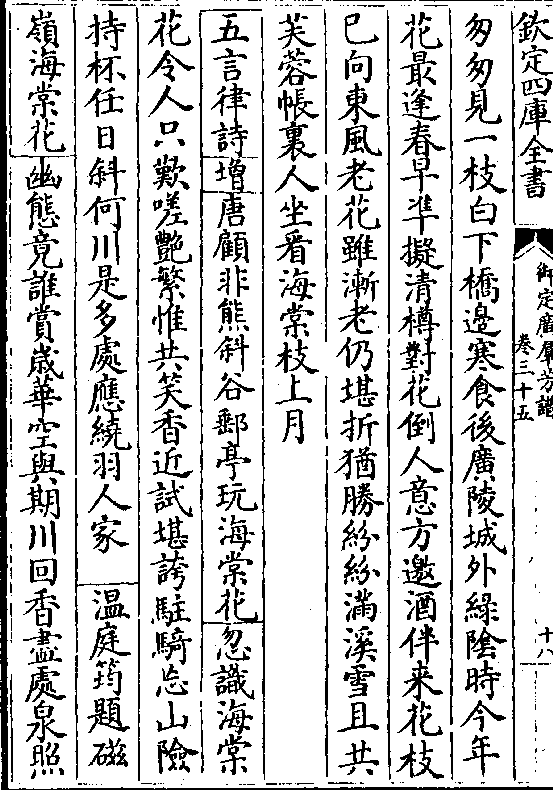 欽定四庫全書
御定廣羣芳譜
卷三十五
十八
匆匆見一枝白下橋邊寒食後廣陵城外綠陰時今年
花最逢春早準擬清樽對花倒人意方邀酒伴来花枝
已向東風老花雖漸老仍堪折猶勝紛紛滿溪雪且共
芙蓉帳裏人坐看海棠枝上月
五言律詩增唐顧非熊斜谷郵亭玩海棠花忽識海棠
花令人只歎嗟艷繁惟共笑香近試堪誇駐騎忘山險
持杯任日斜何川是多處應繞羽人家 温庭筠題磁
嶺海棠花幽態竟誰賞歲華空與期川回香盡處泉照